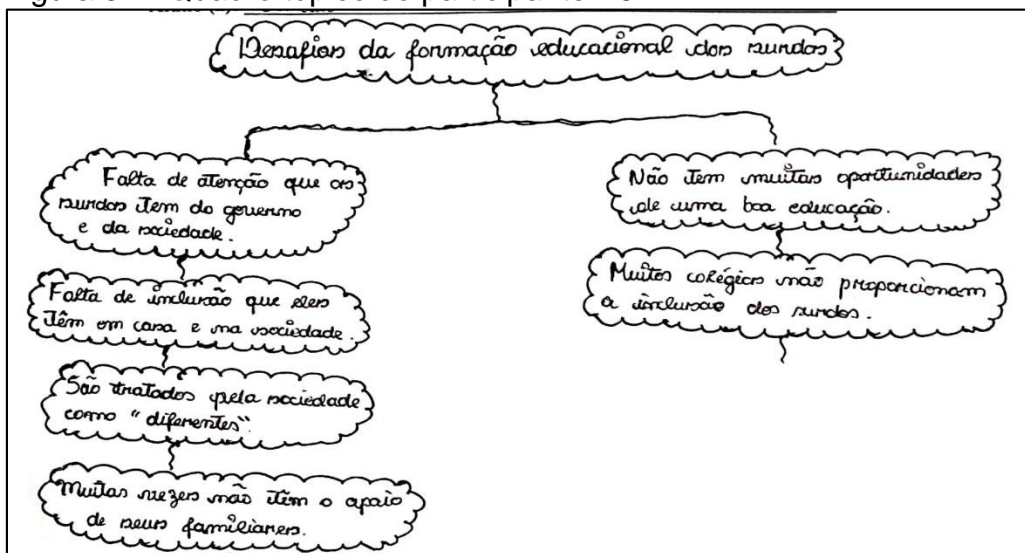 Desafios da formação educacional dos surdos
Falta de atenção que os
surdos tem do governo
e da sociedade.
Falta de inclusão que eles
têm em casa e na sociedade.
São tratados pela sociedade
como "diferentes".
Muitas vezes não têm o apoio
de seus familiares.
Não tem muitas oportunidades
de uma boa educação.
Muitos colégios não proporcionam
a inclusão dos surdos.